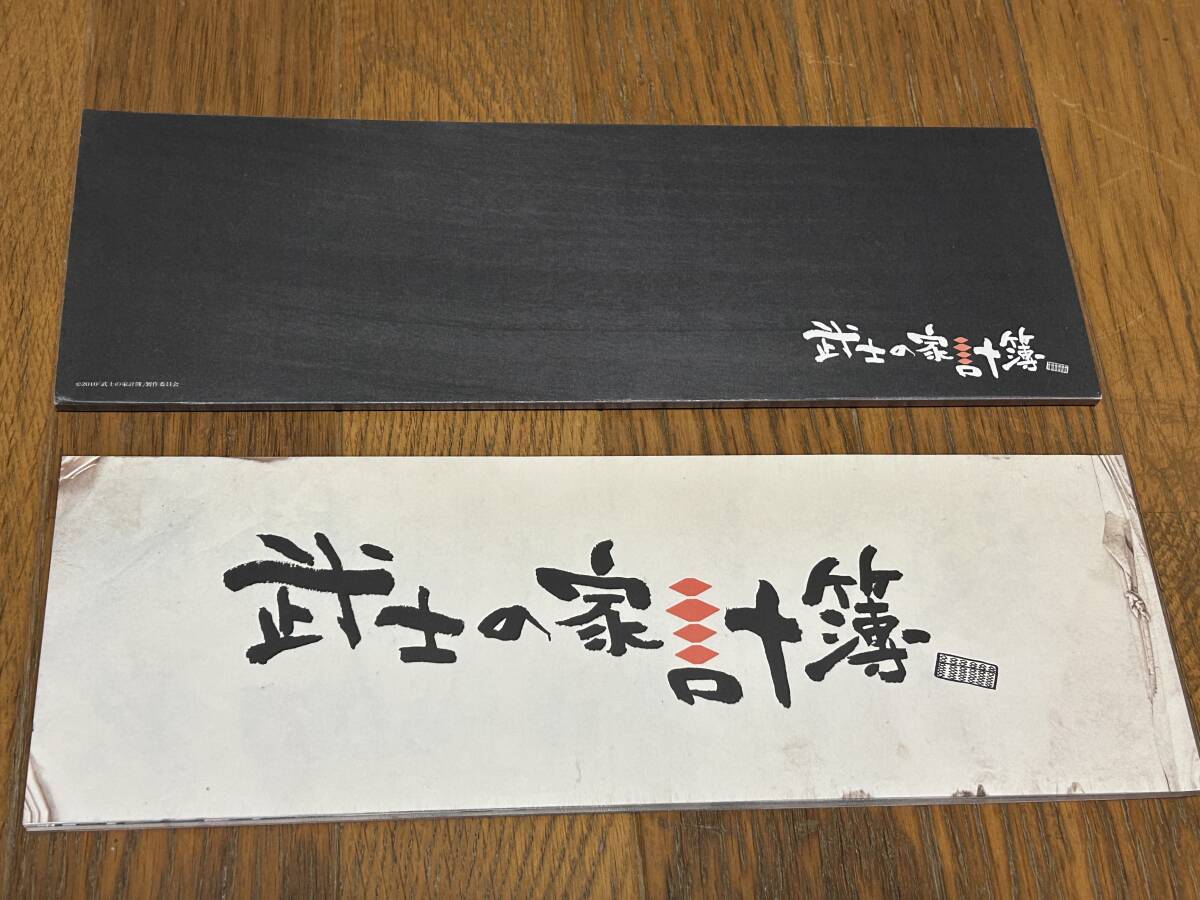 武士の家計簿
©2010「武士の家計簿」製作委員会
武士の家計簿